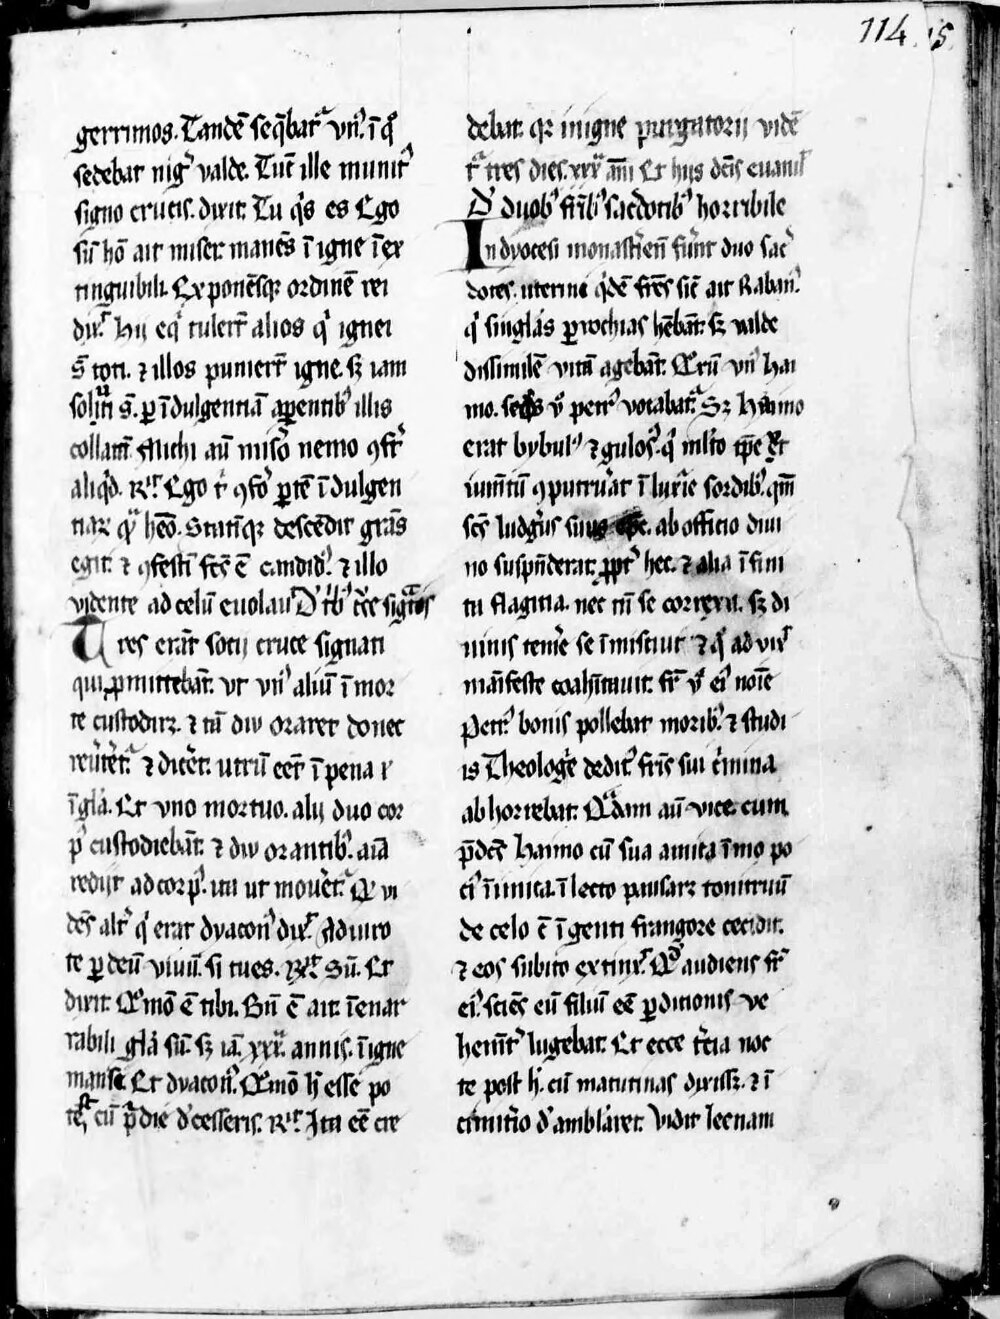 114 15
gerrimos. Tandē seq̄batᷣ vnꝰ. ī qͦ
sedebat nigᷣ valde. Tūc ille munitꝰ
signo crucis. dixit. Tu qͥs es Ego
sū hō ait miser. manēs ī igne īex
tinguibili. Exponēsqꝫ ordinē rei
dixͭ. Hij eqͥ tulerūt alios qͥ ignei
s̄ toti. ⁊ illos punierūt igne. sꝫ iam
soluti s̄. ꝑ īdulgentiā aparentibꝰ illis
collatā. Michi aū miſo nemo ꝯfert
aliqͥd. Rͭ. Ego t̄ ꝯfero partē īdulgen
tiaꝝ qᷓ heo. Statīqꝫ descēdit grās
egit. ⁊ ꝯfestī fcūs ē candidꝰ. ⁊ illo
vidente ad celū euolauit D̓ tbꝰ cͨe sigᷓtis
Tres erāt socij cruce signati
qui ꝓmittebāt. vt vnꝰ aliū ī mor
te custodiret. ⁊ tā diu oraret donec
reūtetᷣ. ⁊ dicēt. utrū eēt ī pena ł
ī glā. Et vno mortuo. alij duo cor
pꝰ custodiebāt. ⁊ diu orantibꝰ. aīa
redijt ad corpꝰ. ita ut mouētᷣ. Qͦ vi
dēs altᷣ qͥ erat dyaconꝰ dixͭ. Adiuro
te ꝑ deū viuū. si tu es. Rͭ. Sū. Et
dixit. Qͦmō ē tibi. Bn̄ ē ait. īenar
rabili glā sū. sꝫ iā. xxx. annis. ī igne
mansi. Et dyaconꝰ. Qͦmō h̄ esse po
test, cū p̄die d̓cesseris. Rͭ. Ita eē cre
debat. qꝛ in igne purgatorij vidē
tᷣ tres dies. xxxᵃ ām̄ Et hijs dcīs euanuit
D̓ duobꝰ frībꝰ sac̓dotibꝰ horribile
In dyocesi monastīen̄ fūnt duo sac̓
dotes. uterini qͥdē frēs sic̄ ait Rabanꝰ.
qͥ singlās ꝑrochias hēbāt. sꝫ valde
dissimilē vitā agebāt. Qͦrū vnꝰ Hai
mo. secūdus v̄ petrꝰ vocabatᷣ. Sꝫ Haimo
erat bybulꝰ ⁊ gulosꝰ. qͥ mlto tp̄e et
iumētū ꝯputruerat ī luxrie sordibꝰ. qm̄
scs̄ ludgerus suus ep̄c. ab officio diui
no suspēderat. ꝓpt̄ hec. ⁊ alia īfini
ta flagitia. nec tn̄ se correxit. sꝫ di
uinis temē se īmiscuit ⁊ qͦ ad vixͭ
maīfeste coahītauit. frᷣ v̄ eiꝰ noīe
Petrꝰ bonis pollebat moribꝰ. ⁊ studi
is Theologie deditꝰ. frīs sui cͥmina
abhorrebat. Qᷓdam aū vice cum
p̄dcūs Haimo cū sua amita īmo po
ciꝰ īimica. ī lecto pausaret tonitruū
de celo cū īgenti frangore cecidit.
⁊ eos subito extinxͭ. Qͦd audiens frᷣ
eiꝰ. sciēs eū filiū eē ꝑditionis ve
hemēt̓ lugebat. Et ecce t̄cia noc
te post h̄. cū matutinas dixisset. ⁊ ī
cimit̓io d̓ambularet. Vidit leenam